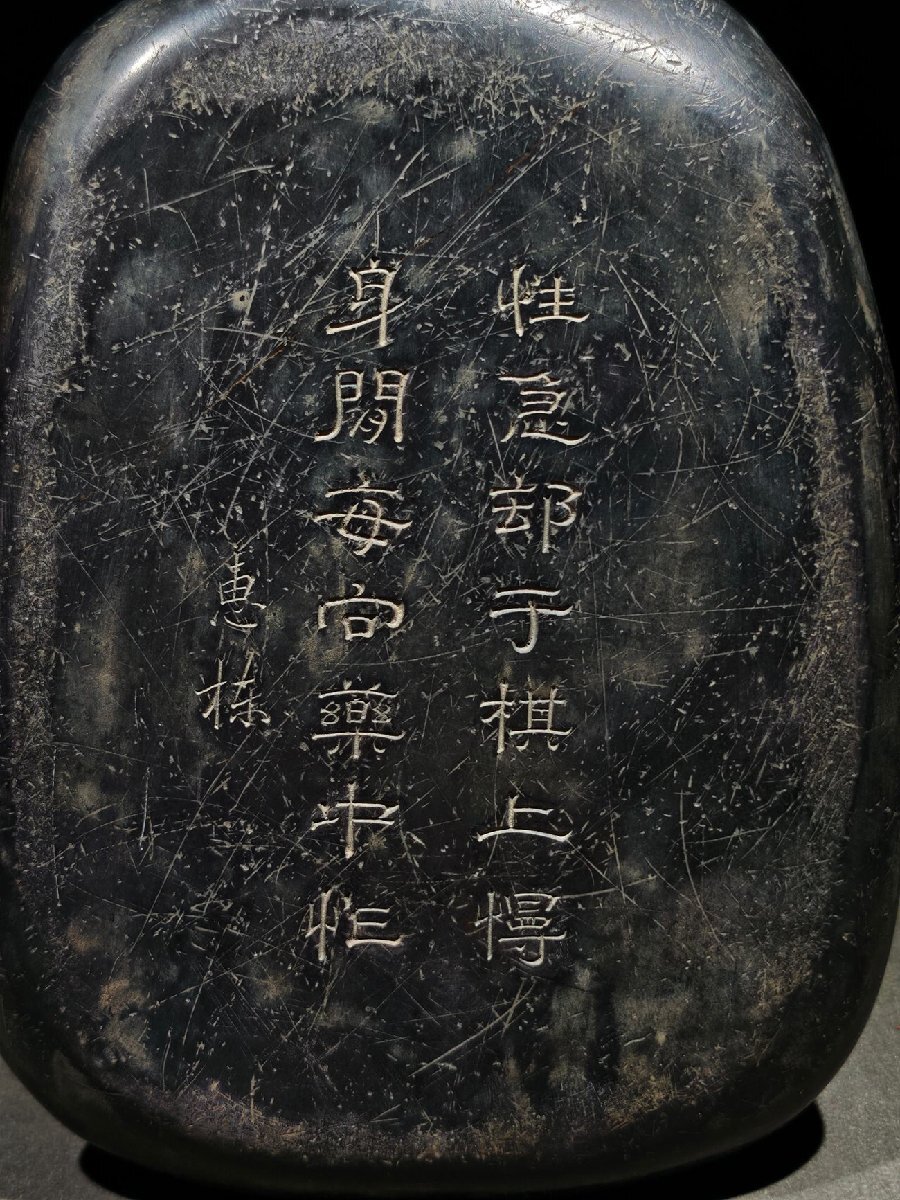 性急却于棋上慢
身閒每向藥中忙
惠棟